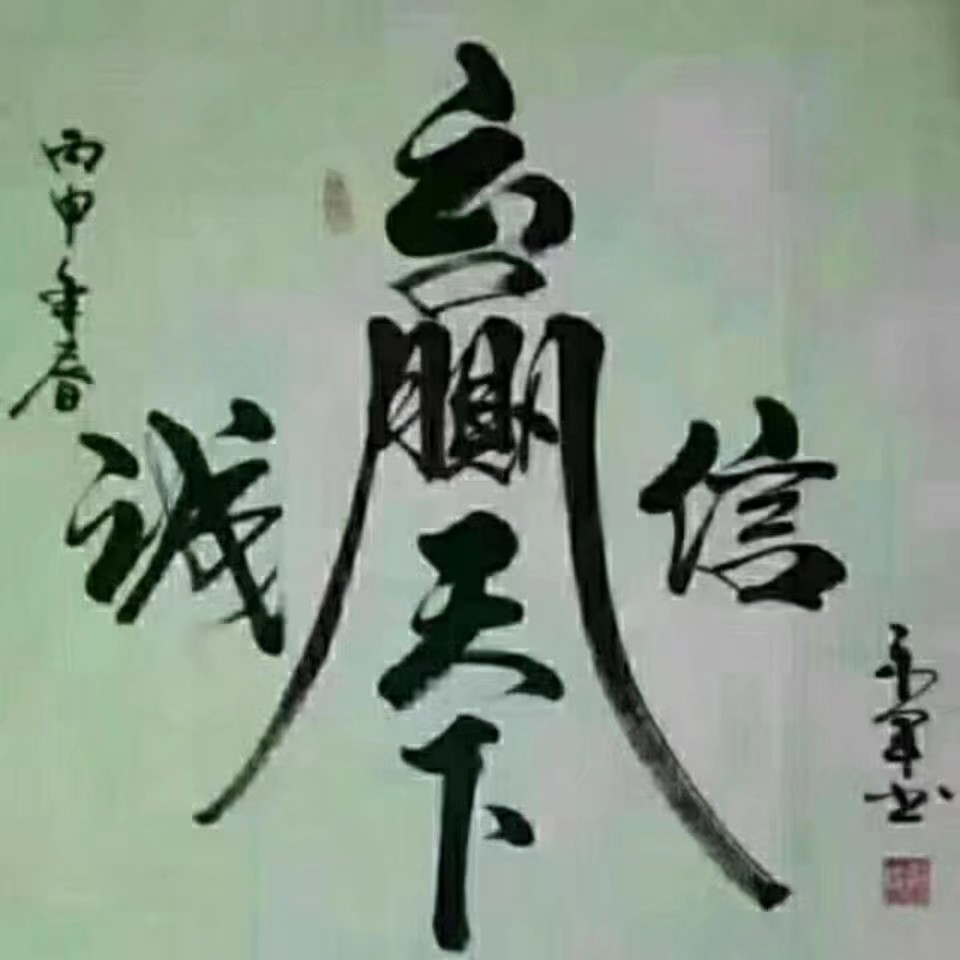 丙申年春
诚
信
赢
天下
军书